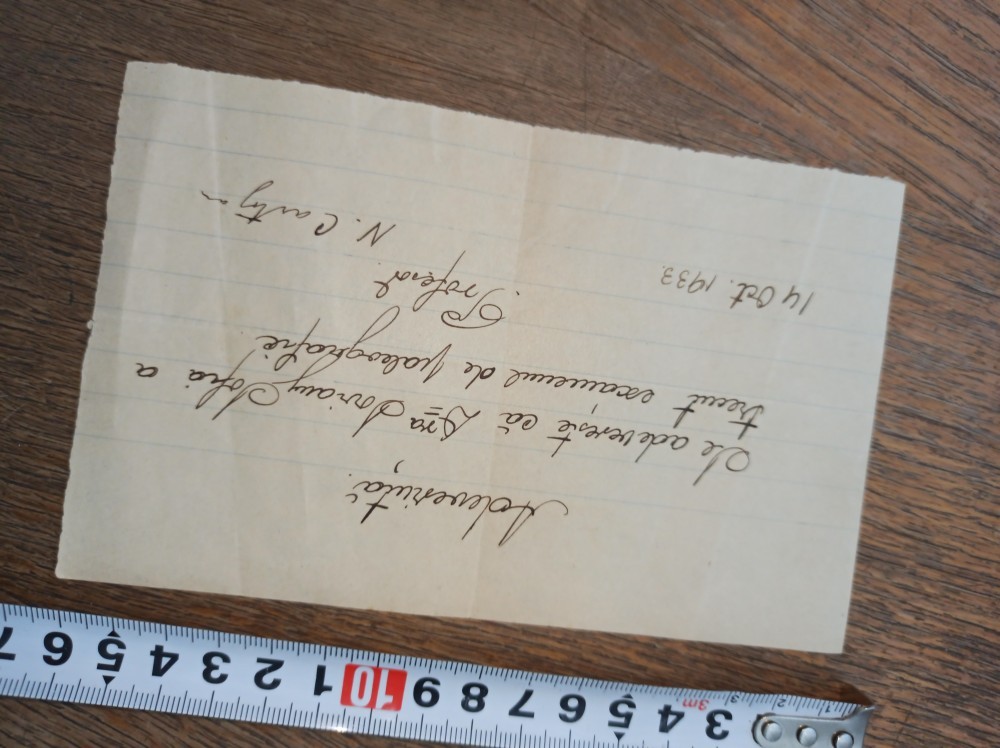 Adeverință.
Se adeverește că Dra Sofia a
trecut examenul de paleografie
Profesor
N. Cartojan
14 Oct. 1933.
3m
3 4 5 6 7 8 9 10 1 2 3 4 5 6 7